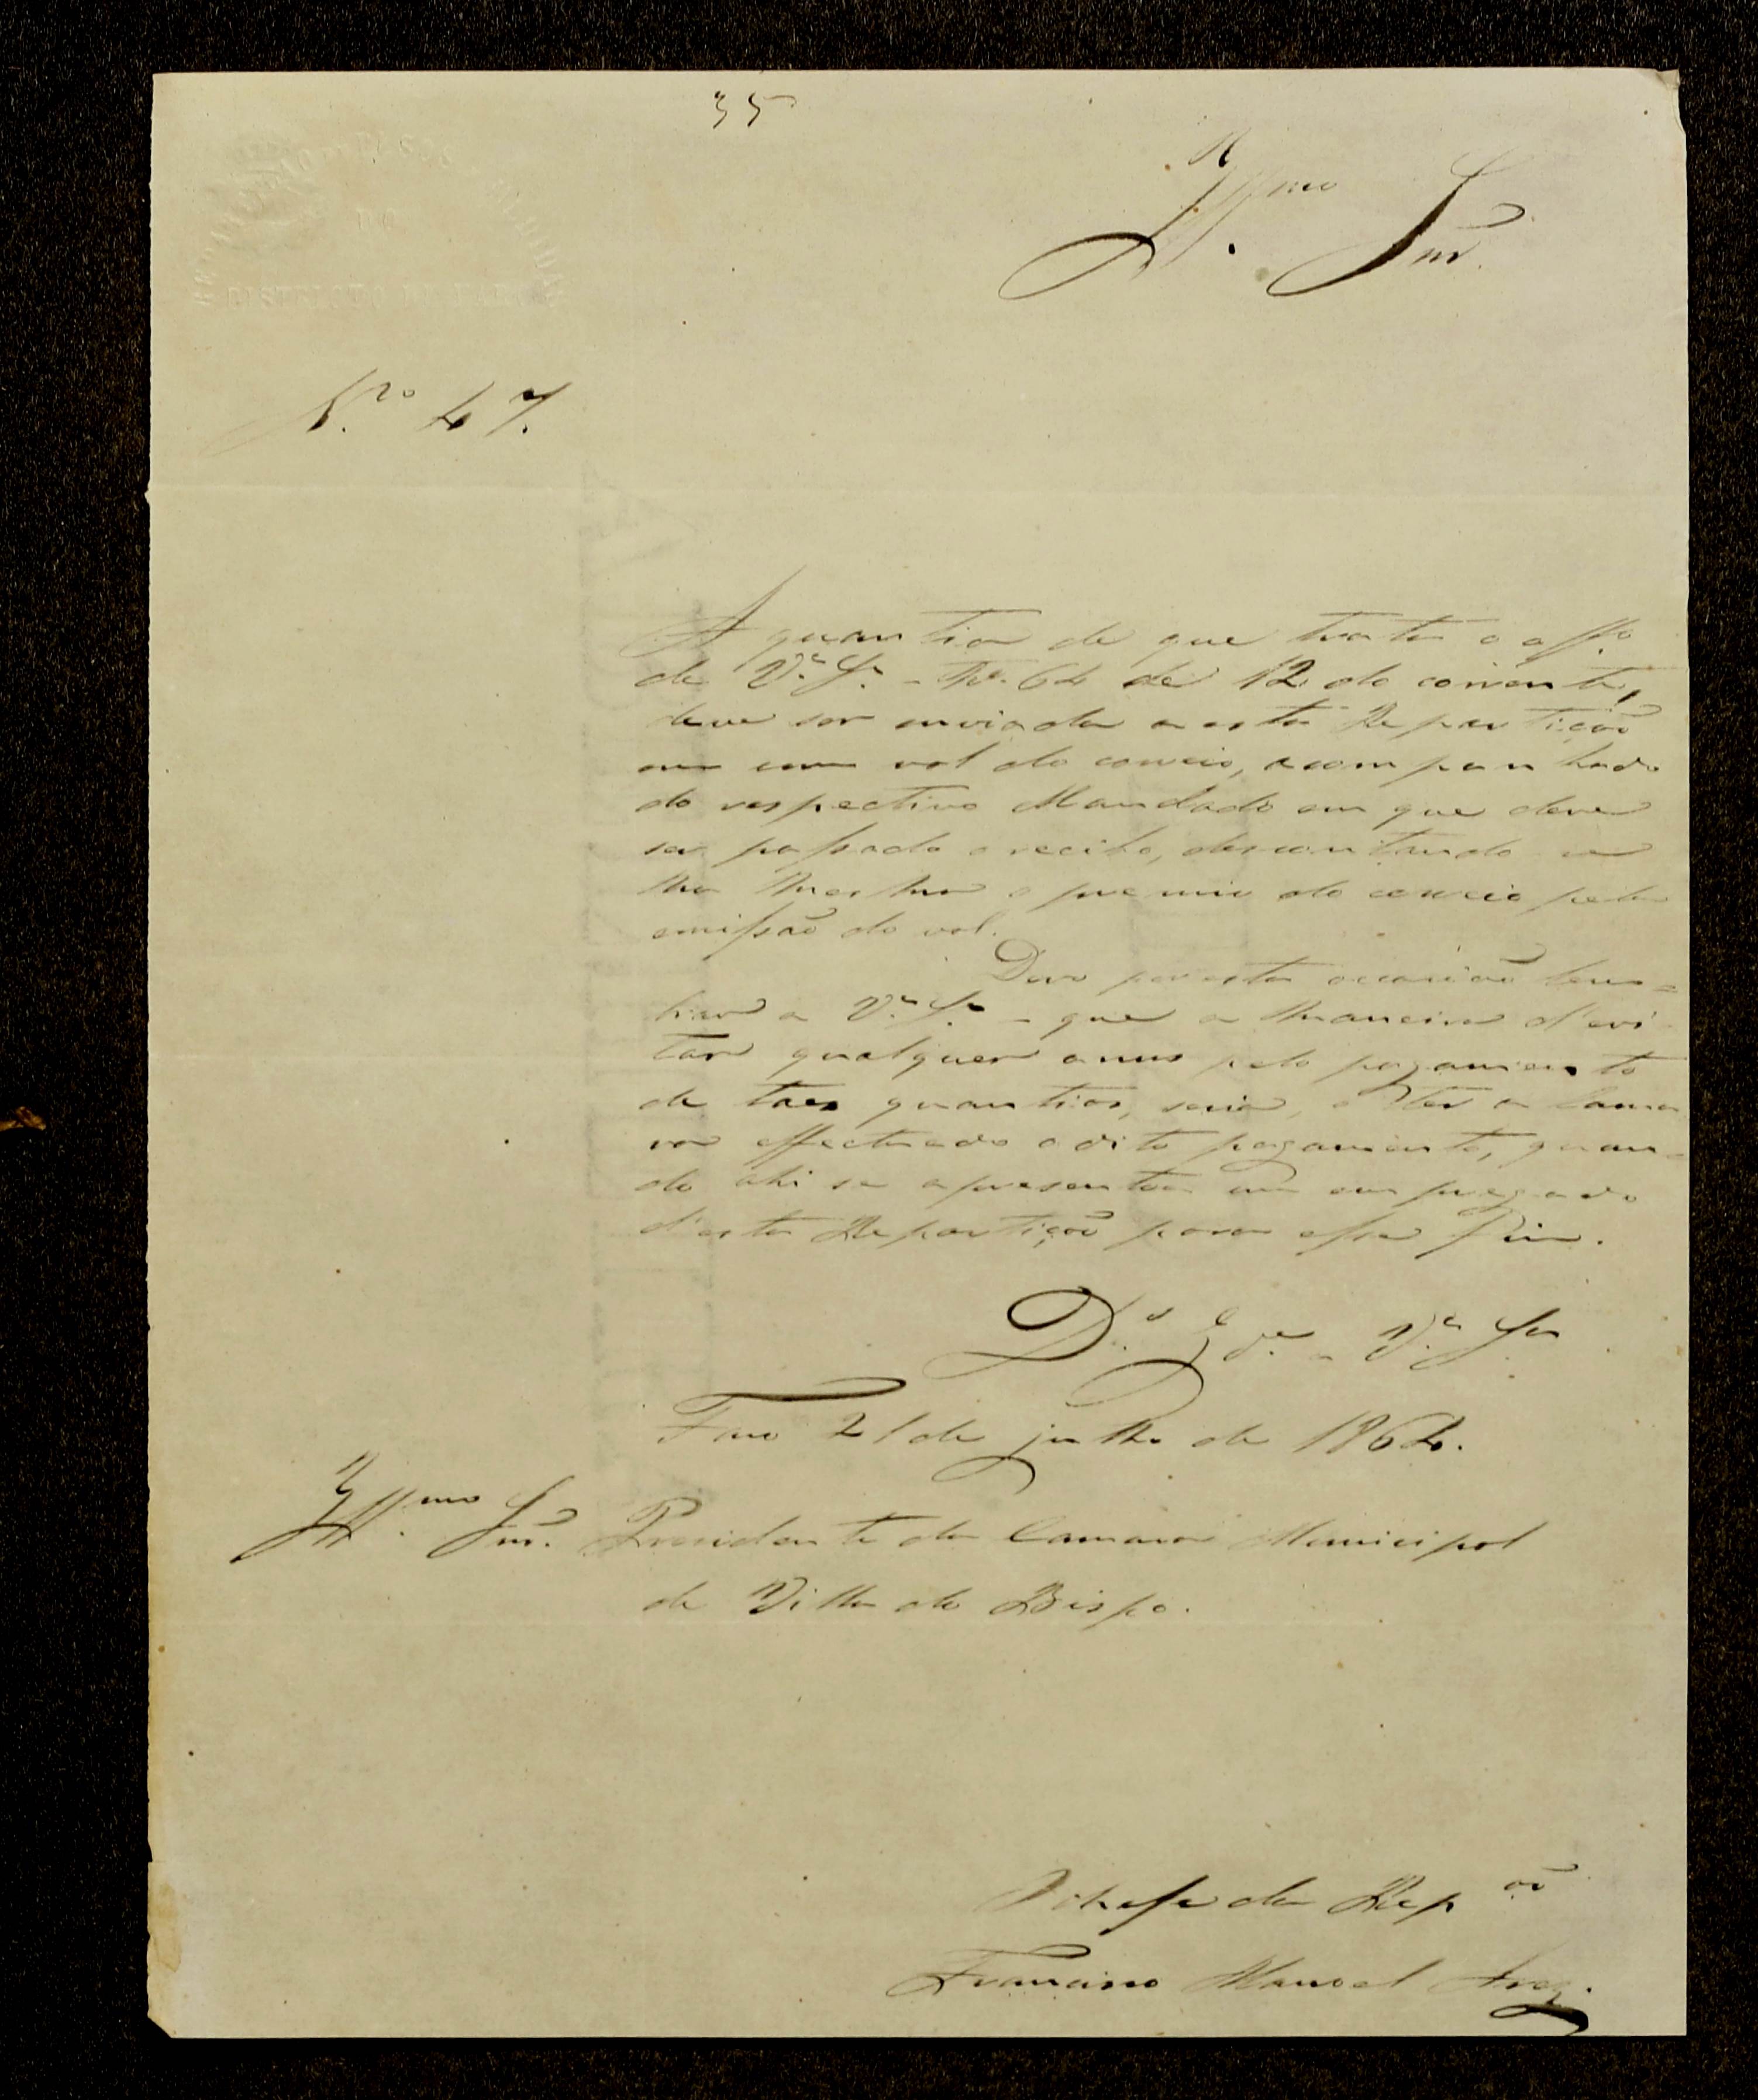 35
Illmo Snr.
N.o 47.
A quantia de que tracta o offo
de V.a S.a - No. 64 de 12 do corrente,
deve ser enviada a esta Repartição
em um val do correio, acompanhado
do respectivo Mandado em que deve
ser passado o recibo, descontando-se
na mesma o premio do correio pela
emissão do val.
Devo por esta occasião lem=
brar a V.a S.a - que a maneira d'evi
tar qualquer onus pelo pagamento
de taes quantias, seria, o ter a Cama
ra effectuado o dito pagamento, quan=
do ahi se apresentou um empregado
d'esta Repartição para esse fim.
D.s G.de a V.a S.a
Faro 21 de julho de 1864.
Illmo Snr. Presidente da Camara Municipal
de Villa do Bispo.
O chefe da Repão
Francisco Manoel